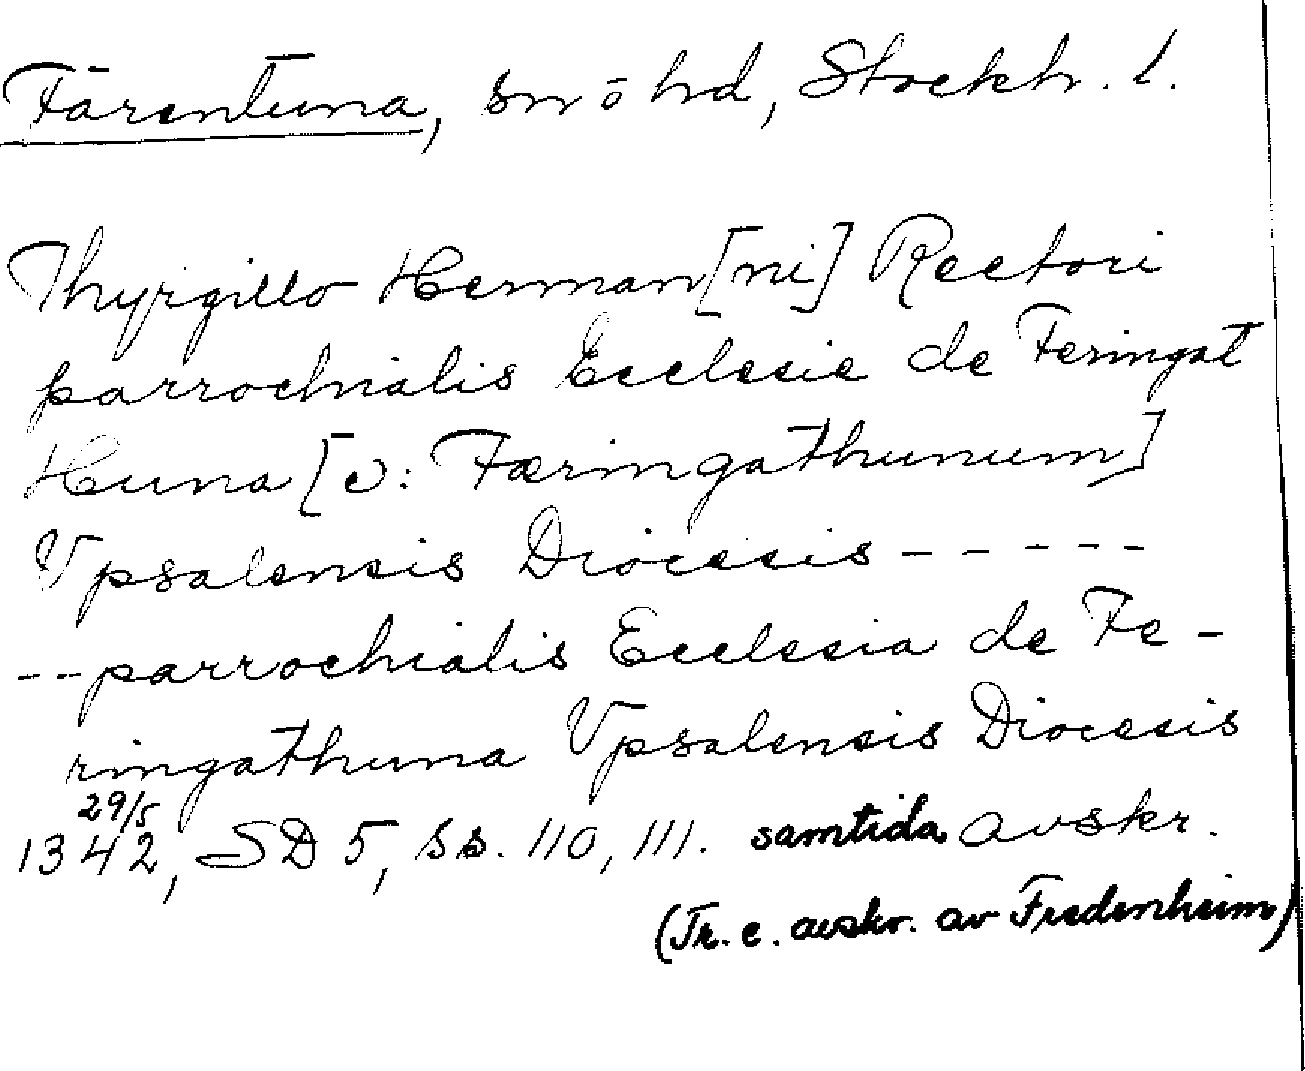 Färentuna, sn o hd, Stockh. l.
Thyrgillo Herman[ni] Rectori
parrochialis Ecclesie de Feringat
Huna [ɔ: Færingathunum]
Vpsalensis Diocesis - - - - -
- - parrochialis Ecclesia de Fe-
ringathuna Vpsalensis Diocesis
29/5
1342, SD 5, ss. 110, 111. samtida avskr.
(Tr. e. avskr. av Fredenheim)